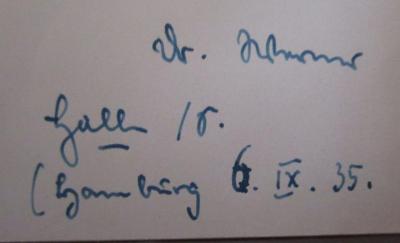 Dr.
Halle /S.
(Hamburg 6. IX. 35.